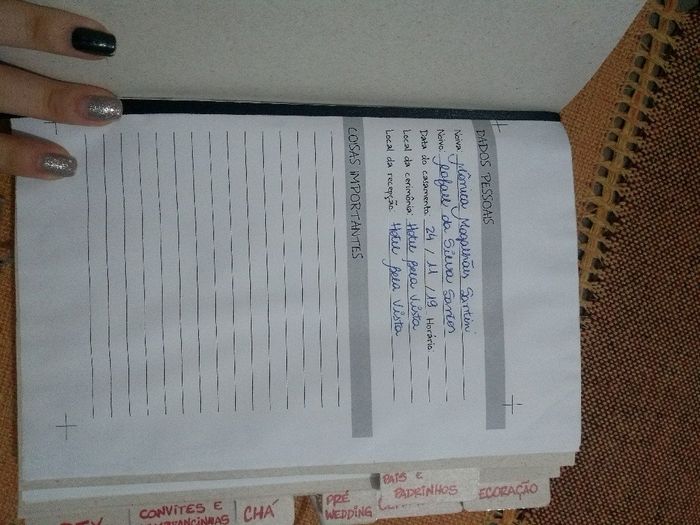 DADOS PESSOAIS
Noiva: Mônica Magalhães Santini
Noivo: Rafael da Silva Santos
Data do casamento: 24 / 11 / 19 Horário:
Local da cerimônia: Hotel Bela Vista
Local da recepção: Hotel Bela Vista
COISAS IMPORTANTES
CONVITES E
CHÁ
PRÉ
WEDDING
PAIS E
PADRINHOS